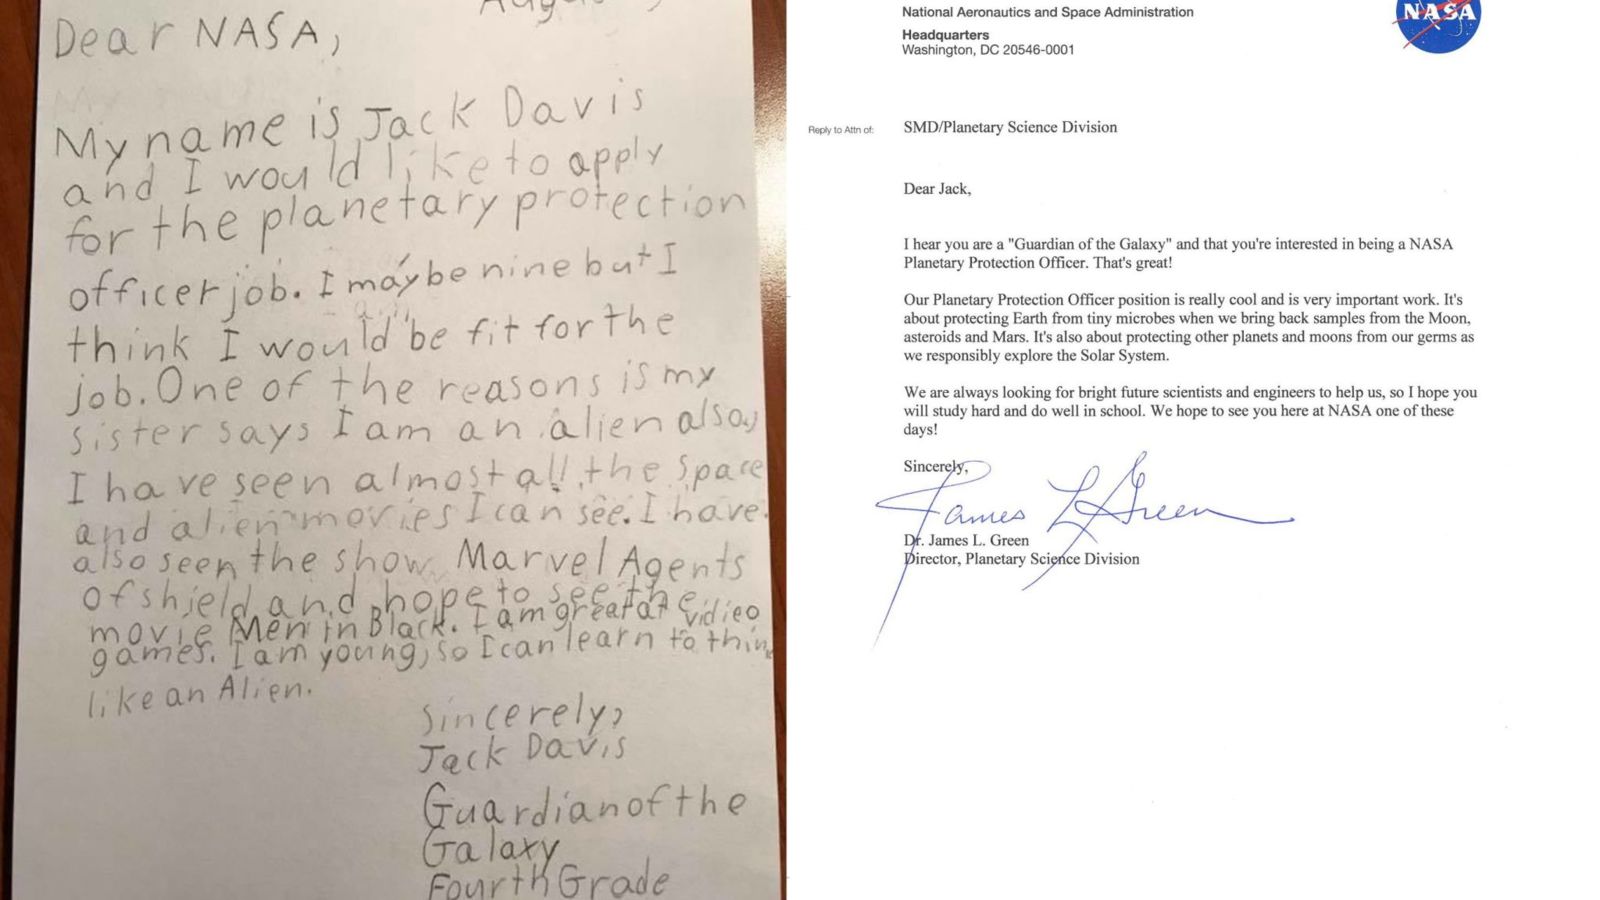 Dear NASA,
My name is Jack Davis
and I would like to apply
for the planetary protection
officer job. I may be nine but I
think I would be fit for the
job. One of the reasons is my
sister says I am an alien also,
I have seen almost all the space
and alien movies I can see. I have
also seen the show Marvel Agents
of shield and hope to see the
movie Men in Black. I am great at vidieo
games. I am young, so I can learn to think
like an Alien.
Sincerely,
Jack Davis
Guardian of the
Galaxy
Fourth Grade
National Aeronautics and Space Administration
Headquarters
Washington, DC 20546-0001
NASA
Reply to Attn of: SMD/Planetary Science Division
Dear Jack,
I hear you are a "Guardian of the Galaxy" and that you're interested in being a NASA
Planetary Protection Officer. That's great!
Our Planetary Protection Officer position is really cool and is very important work. It's
about protecting Earth from tiny microbes when we bring back samples from the Moon,
asteroids and Mars. It's also about protecting other planets and moons from our germs as
we responsibly explore the Solar System.
We are always looking for bright future scientists and engineers to help us, so I hope you
will study hard and do well in school. We hope to see you here at NASA one of these
days!
Sincerely,
James L Green
Dr. James L. Green
Director, Planetary Science Division